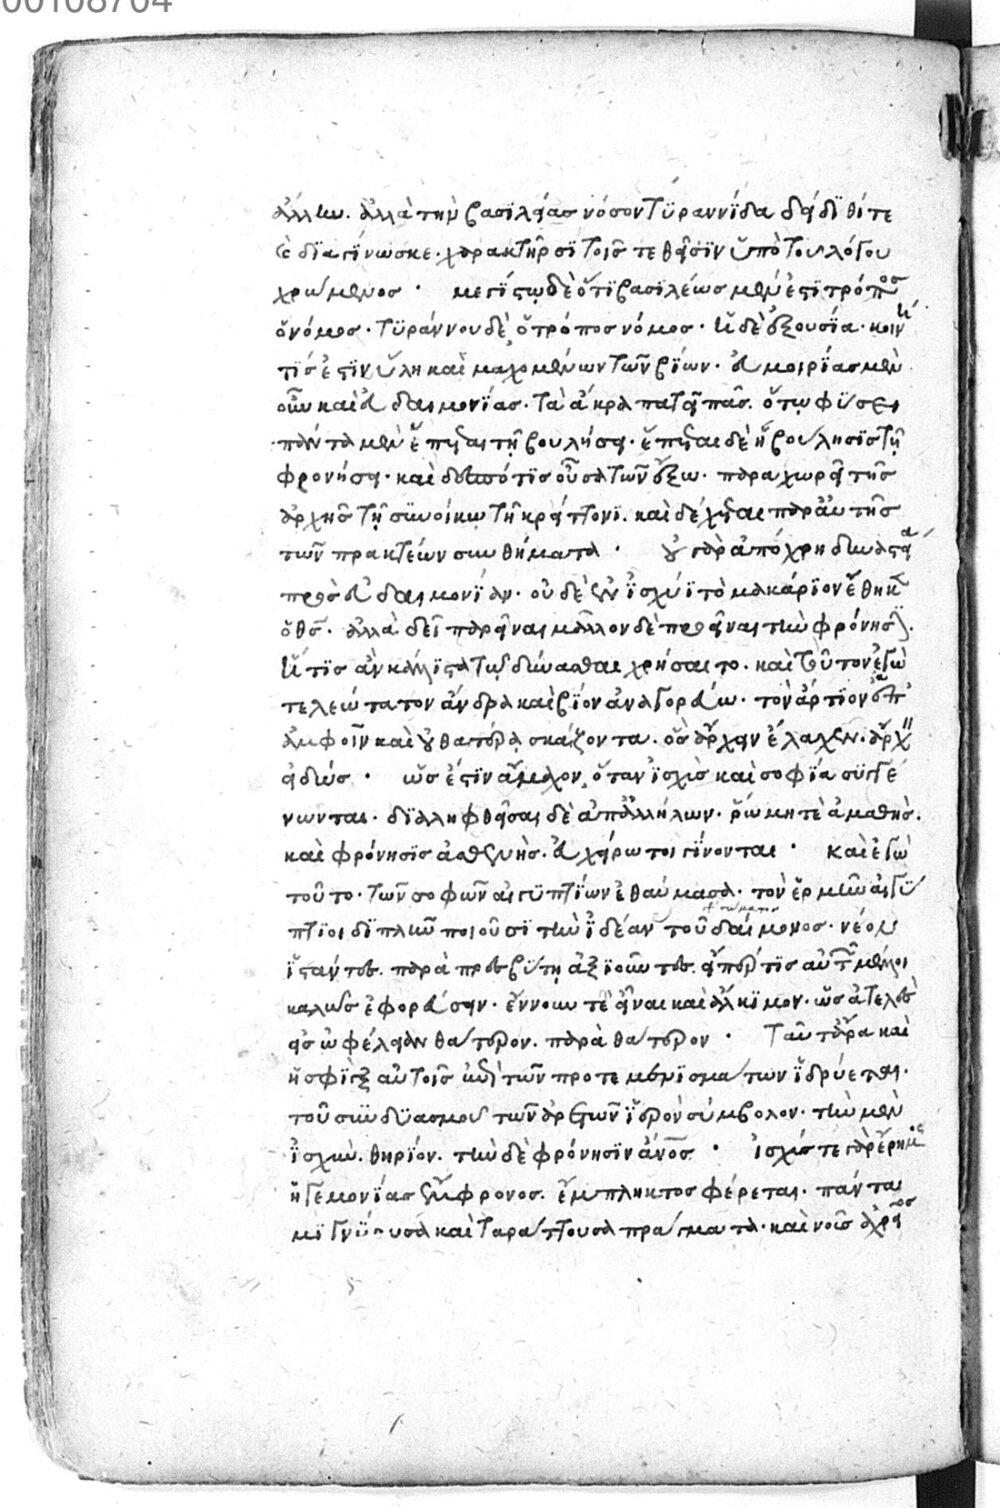 ἄλλων. ἀλλὰ τὴν βασϊλείας νόσον τϋραννΐδα δέδϊθί τε
καὶ δϊαγίνωσκε. χαρακτῆρσϊ τοῖς τεθεῖσϊν ὑπὸ τοῦ λόγου
χρώμενος · μεγίστῳ δὲ ὅτι βασϊλέως μὲν ἐστι τρόπος
ὁ νόμος. τϋράννου δὲ, ὁ τρόπος νόμος. ἡ δὲ ἐξουσΐα. κοινή
τίς ἐστϊν ὕλη καὶ μαχομένων τῶν βΐων. εὐμοιρΐας μὲν
οὖν καὶ εὐδαιμονΐας. τὰ ἄκρα πατεῖ πᾶς. ὅτῳ φΰσει
πάντα μὲν ἕπεται τῇ βουλήσει. ἕπεται δὲ ἡ βούλησϊς τῇ
φρονήσει. καὶ δεσπότϊς οὖσα τῶν ἔξω. παραχωρεῖ τῆς
ἀρχῆς τῇ σϋνοίκῳ τῇ κρείττονϊ. καὶ δέχεται παρ' αὐτῆς
τῶν πρακτέων συνθήματα · οὐ γὰρ ἀπόχρη δυναστεία
πρὸς εὐδαιμονΐαν. οὐδὲ ἐν ἰσχύϊ τὸ μακάρϊον ἔθηκεν
ὁ θς. ἀλλὰ δεῖ παρεῖναι μᾶλλον δὲ προεῖναι τὴν φρόνησϊν.
ἥτϊς ἂν κάλλϊστα τῷ δύνασθαι χρήσαιτο. καὶ τοῦτον ἐγὼ
τελεώτατον ἄνδρα καὶ βΐον ἀναγορεύω. τὸν ἄρτϊον ἐπ'
ἀμφοῖν καὶ οὐ θατέρᾳ σκάζοντα. ὃς ἄρχειν ἔλαχεν. ἄρχειν
εἰδώς · ὡς ἐστϊν ἄμαχον, ὅταν ἰσχὺς καὶ σοφΐα σϋγγέ
νωνται. δϊαληφθεῖσαι δὲ ἀπ' ἀλλήλων. ῥώμη τὲ ἀμαθὴς.
καὶ φρόνησϊς ἀσθενὴς. εὐχείρωτοι γΐνονται · καὶ ἐγὼ
τοῦτο. τῶν σοφῶν αἰγϋπτΐων ἐθαύμασα. τὸν ἑρμῆν αἰγΰ
πτϊοι δϊπλῆν ποιοῦσϊ τὴν ἰδέαν τοῦ δαίμονος. νέον
ϊστάντες. παρὰ πρεσβΰτῃ ἀξϊοῦντες. εἴπερ τϊς αὐτῶν μέλλοι
καλῶς ἐφορεύσειν. ἔννουν τὲ εἶναι καὶ ἄλκϊμον. ὡς ἀτελὲς
εἰς ὠφέλειαν θάτερον. παρὰ θάτερον · ταῦτ' ἄρα καὶ
ἡ σφῒγξ αὐτοῖς ἐπὶ τῶν προτεμενϊσμάτων ἵδρύεται.
τοῦ σϋνδϋασμοῦ τῶν ἀρετῶν ἱερὸν σύμβολον. τὴν μὲν
ἰσχὺν. θηρΐον. τὴν δὲ φρόνησϊν ἄνος · ἰσχύς τε γὰρ ἔρημος
ἡγεμονΐας ἔμφρονος. ἔμπληκτος φέρεται. πάντα
μϊγνΰουσα καὶ ταράττουσα πράγματα. καὶ νοῦς ἀχρεῖος